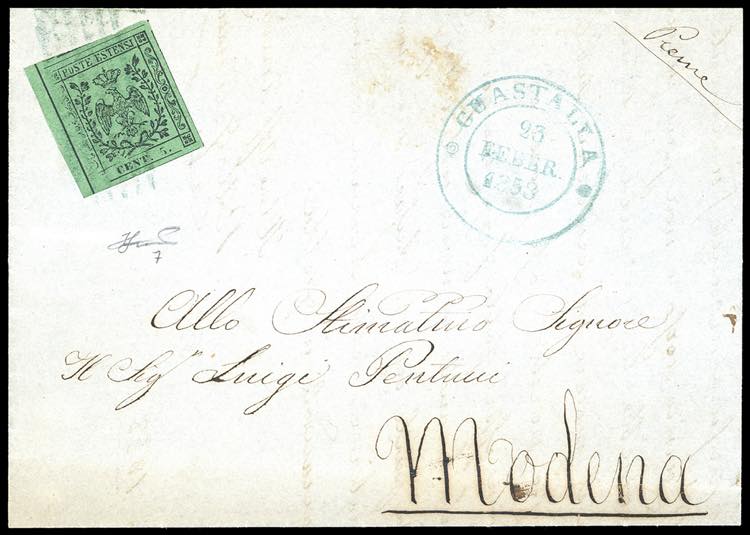 POSTE ESTENSI
CENT. 5.
GUASTALLA
23
FEBBR.
1853
7
Allo Stimatmo Signore
Il Sigr Luigi
Modena